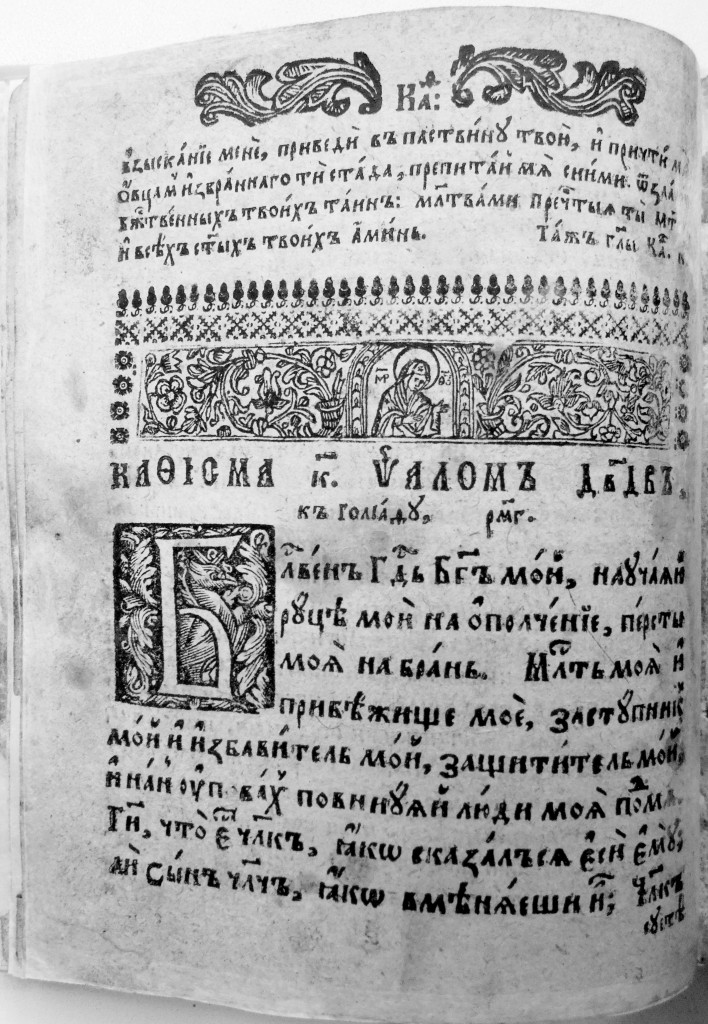 КА҃:
взыска́нїе менѐ, приведѝ въ паствинꙋ̀ твою̀, и҆ причтѝ мѧ̀
ѻ҆вца́мъ и҆збра́ннагѡ тѝ ста́да, препита́й мѧ̀ сни́ми. ѿ зла
бж҃твенныхъ твои́хъ та́инъ: мл҃твами преч҃тыѧ тѝ мт҃
и҆ всѣ́хъ ст҃ы́хъ твои́хъ а҆ми́нь. Та́жъ гл҃ы ка҃.
МР ѲУ
КАѲІСМА К҃. ѰАЛОМЪ ДВ҃ДВЪ,
къ голїа́дꙋ, рм҃г.
Бл҃ве́нъ Гд҃ь Бг҃ъ мо́й, наꙋча́ѧй
рꙋцѣ̀ моѝ на ѻ҆полче́нїе, пе́рсты
моѧ̀ на бра́нь. Мл҃ть моѧ̀ и҆
прибѣ́жище моѐ, застꙋ́пник
мо́й и҆ и҆збави́тель мо́й, защити́тель мо́й,
и҆ на́нь ᲂу҆пова́хъ повинꙋ́ѧй лю́ди моѧ̀ по́мѧ.
Гд҃и, что̀ є҆́сть чл҃къ, ꙗ҆́кѡ сказа́лъсѧ є҆сѝ є҆мꙋ̀;
а҆лѝ сы́нъ чл҃чъ, ꙗ҆́кѡ вмѣнѧ́еши и҆̀; Чл҃къ
сꙋетѣ̀